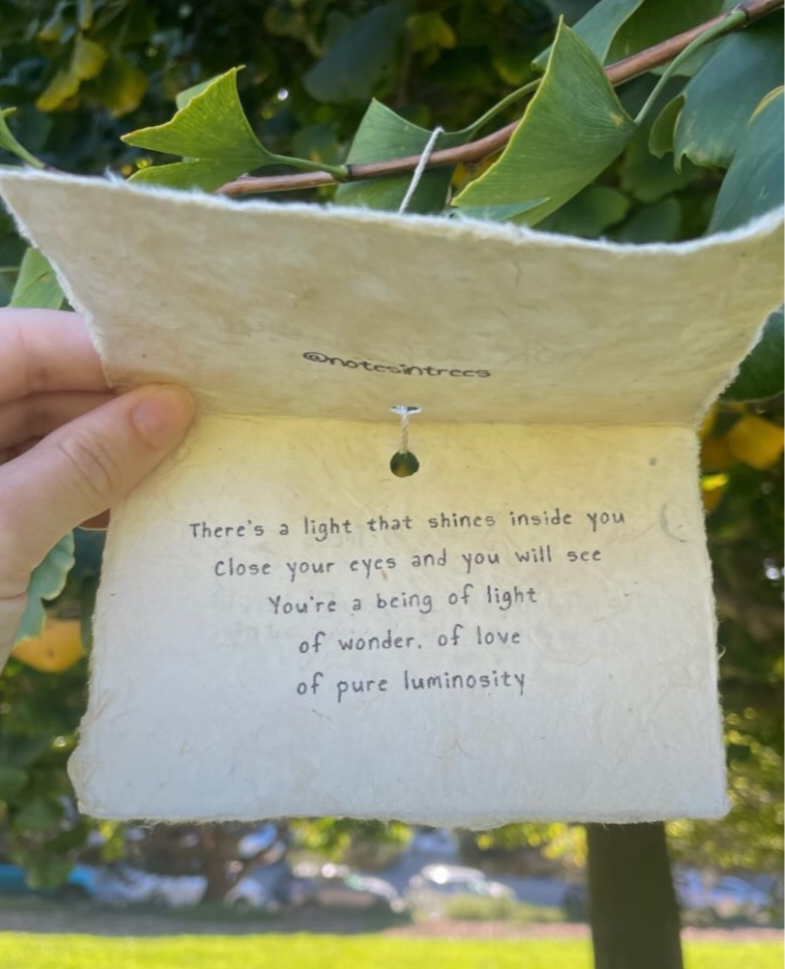 @notesintrees
There's a light that shines inside you
Close your eyes and you will see
You're a being of light
of wonder, of love
of pure luminosity